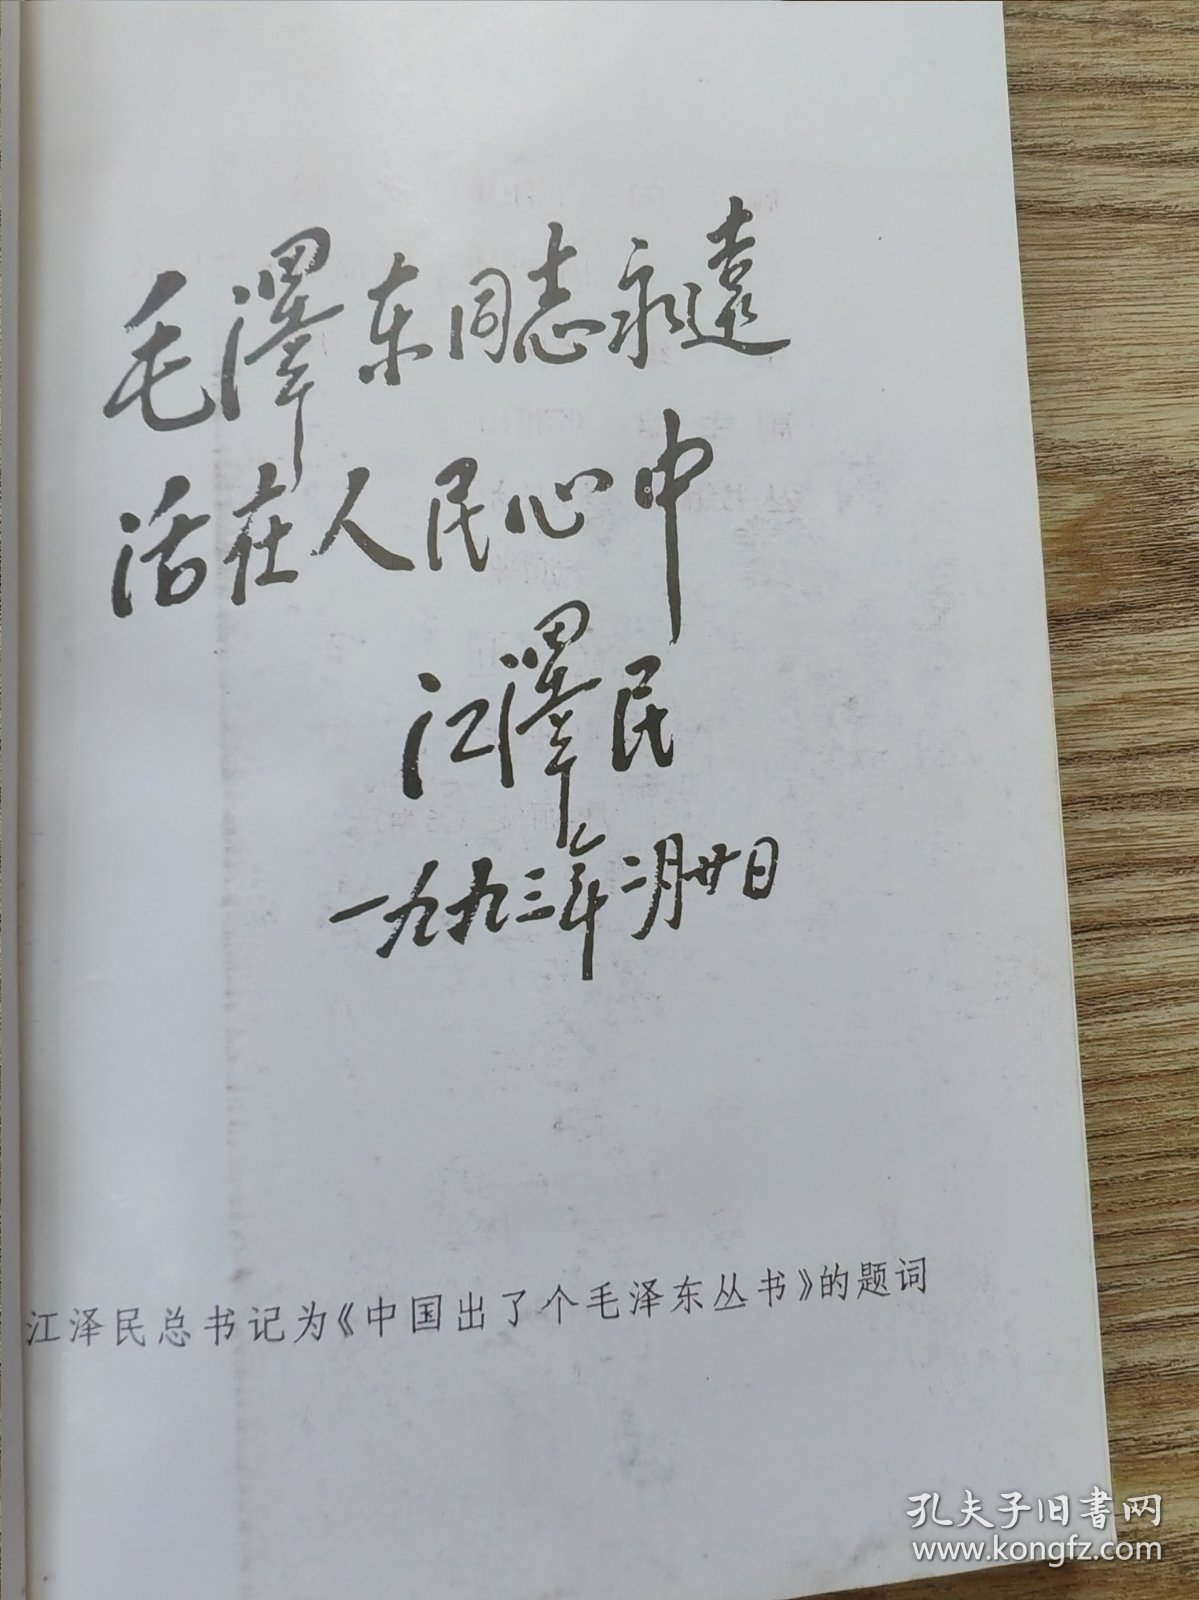 毛澤东同志永遠
活在人民心中
江澤民
一九九三年二月廿日
江泽民总书记为《中国出了个毛泽东丛书》的题词
孔夫子旧書网
www.kongfz.com